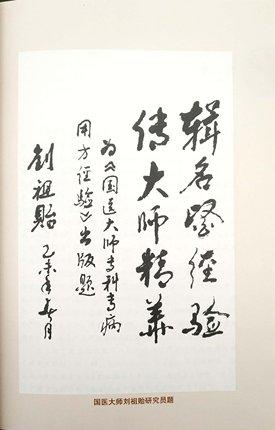 辑名医经验
传大师精华
为《国医大师专科专病
用方经验》出版题
刘祖贻
乙未年春月
国医大师刘祖贻研究员题